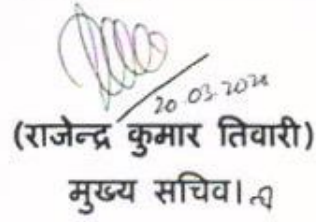 20.03.2020
(राजेन्द्र कुमार तिवारी)
मुख्य सचिव।